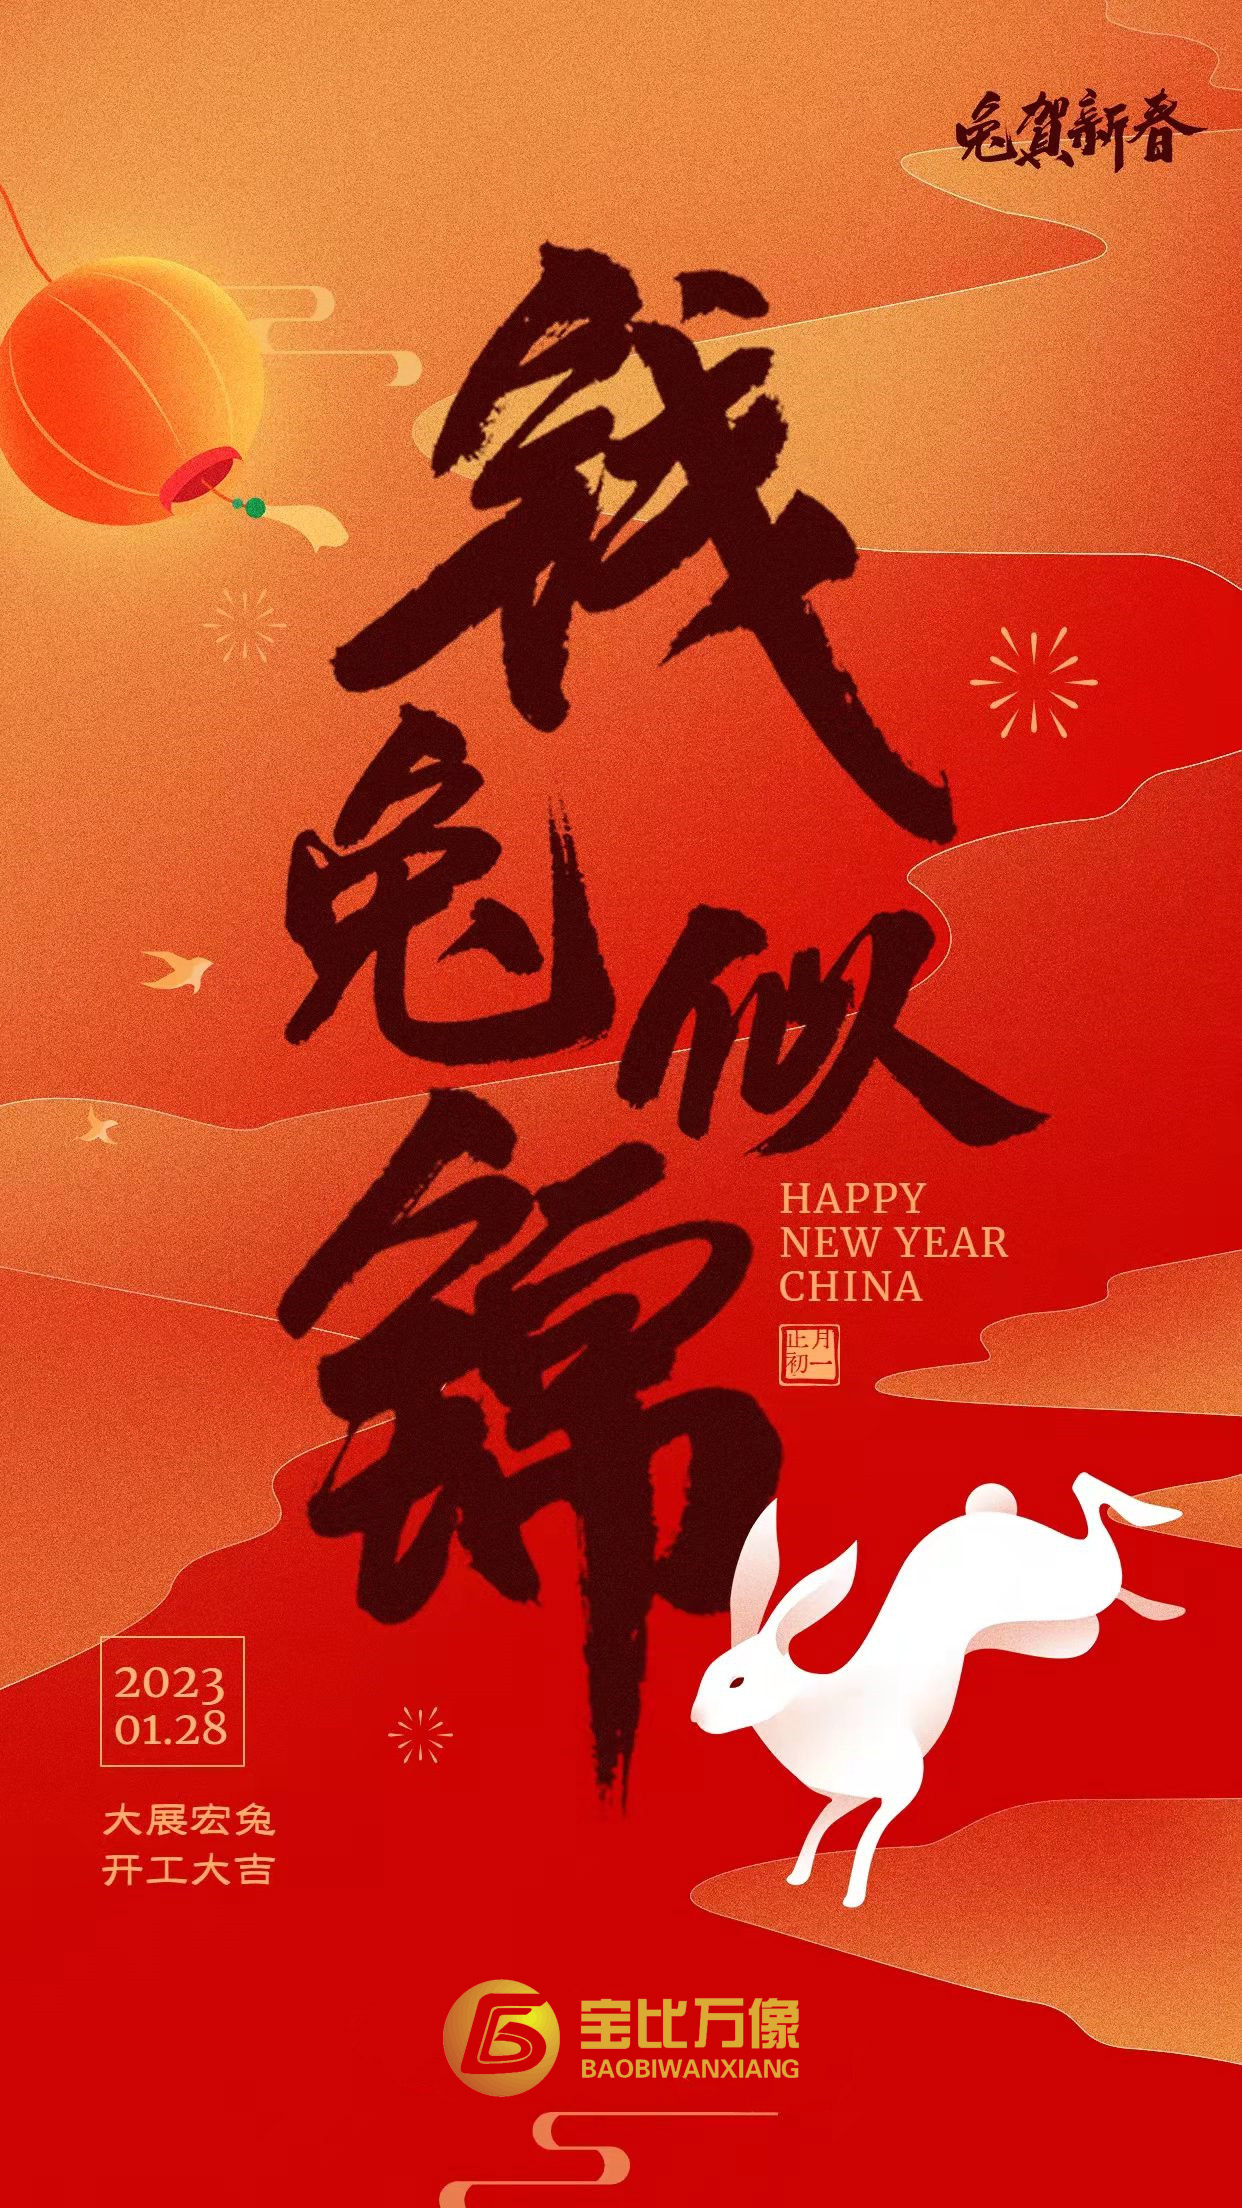 兔賀新春
钱
兔
似
锦
HAPPY
NEW YEAR
CHINA
正月
初一
2023
01.28
大展宏兔
开工大吉
宝比万像
BAOBIWANXIANG